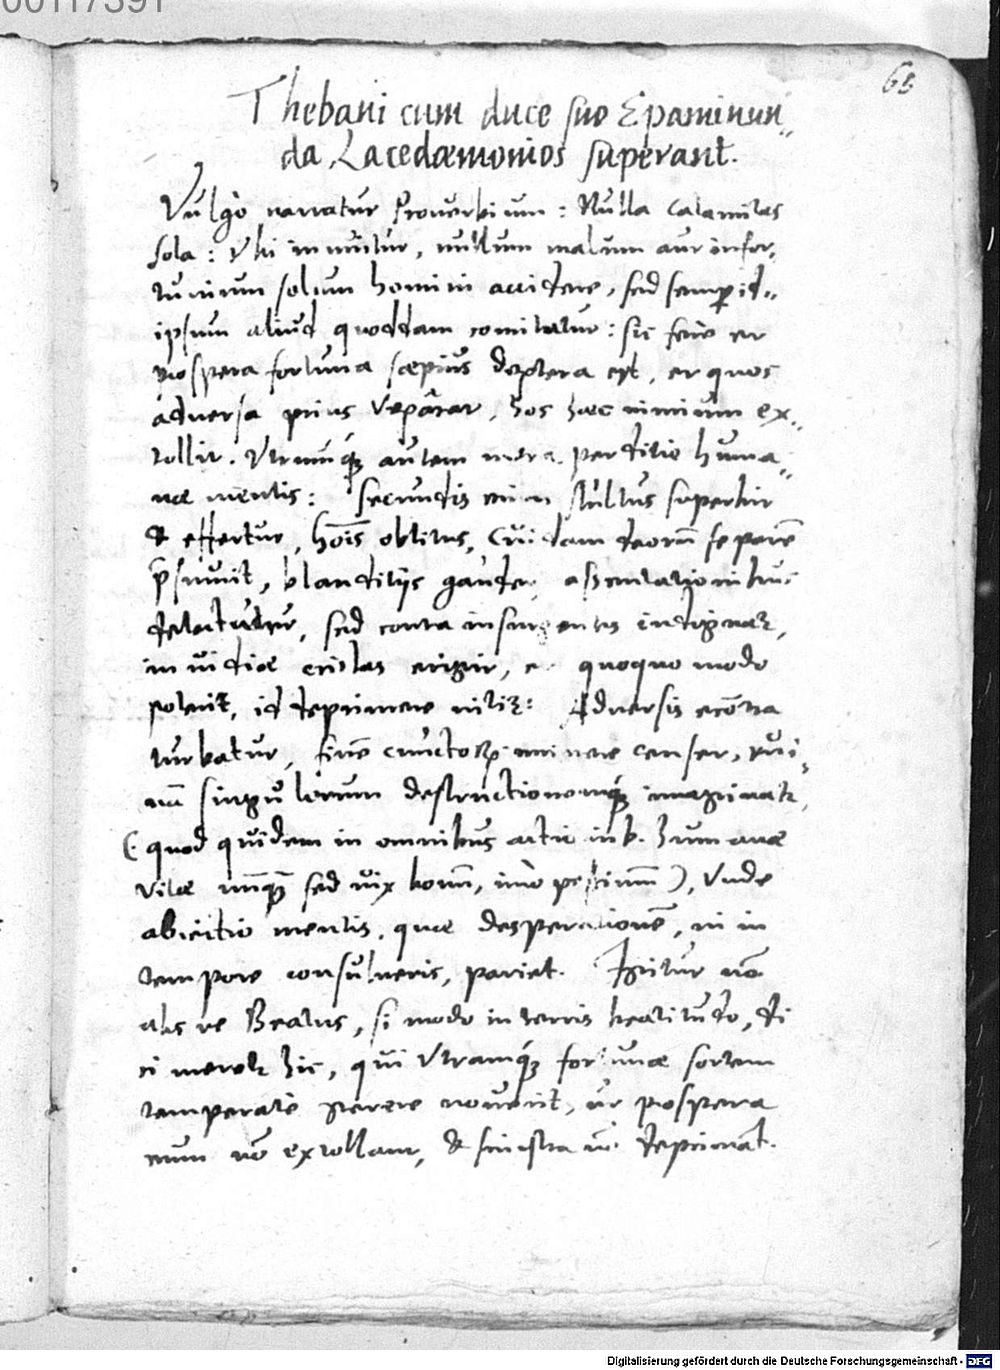 00117391
65
Thebani cum duce suo Epaminun
da Lacedæmonios superant.
Vulgò narratur Proverbium : Nulla calamitas
sola : Vbi innuitur, nullum malum aut infor,
tunium solum homini accidere, sed semp id,,
ipsum aliud quoddam comitatur : sic fere et
prospera fortuna sæpius doptera est, et quos
adversa prius vexârat, hos hæc nimium ex,,
tollit. Vtrumq́ue autem mera perditio huma,,
næ mentis : secundis enim stultus superbit
& effertur, hoīs oblitus, cuidam deorū se parē
p̄sumit, blanditijs gaudet, assentationibus
delectatur, sed contra insurgentes indignatr,
invidiæ cristas erigit, et quoquo modo
poterit, id deprimere nititr : Adversis ecōtra
turbatur, finē cunctorum imminere censet, rui,
nā singulorum destructionemq́ue imaginatr,
(: quod quidem in omnibus actib. humanæ
vitæ nunquam sed vix bonū, imò pessimū ), Vnde
abiectio mentis, quæ desperationē, ni in
tempore consulueris, pariet. Igitur nō
abs re Beatus, si modo in terris beatitudo, di
ci meretr hic, qui vtramq́ue fortunæ sortem
temperatè gerere noverit, ut prospera
eum nō extollant, & sinistra nō deprimāt.
Digitalisierung gefördert durch die Deutsche Forschungsgemeinschaft - DFG